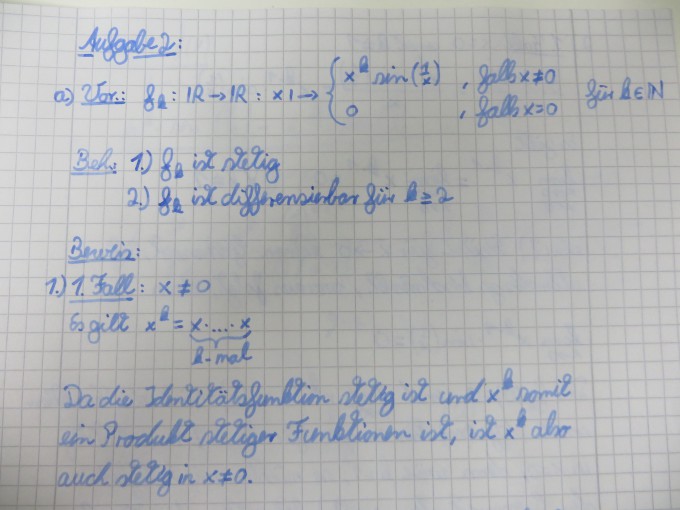 Aufgabe 2:
a) Vor.: f_k : ℝ → ℝ : x ↦ { x^k sin(1/x) , falls x ≠ 0 für k ∈ ℕ
0 , falls x = 0
Beh.: 1.) f_k ist stetig
2.) f_k ist differenzierbar für k ≥ 2
Beweis:
1.) 1. Fall: x ≠ 0
Es gilt x^k = x · .... · x
k-mal
Da die Identitätsfunktion stetig ist und x^k somit
ein Produkt stetiger Funktionen ist, ist x^k also
auch stetig in x ≠ 0.